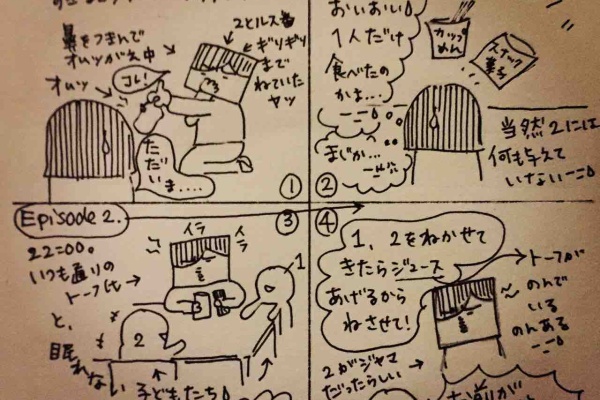 鼻をつまんで
オムツがえ中
2とルス番
ギリギリ
まで
ねていた
ヤツ
オムツ
コレ!
ただ
いま....
①
おいおい
1人だけ
食べたの
かよ...
カップ
めん
スナック
菓子
まじか...
当然2には
何も与えて
いない
②
Episode 2.
③
22:00。
いつも通りの
トーフ氏→
イラ
イラ
1
2
と、
眠れない
子どもたち
④
1、2をねかせて
きたらジュース
あげるから
ねさせて!
トーフが
のんで
いる
のんある
2がジャマ
だったらしい→